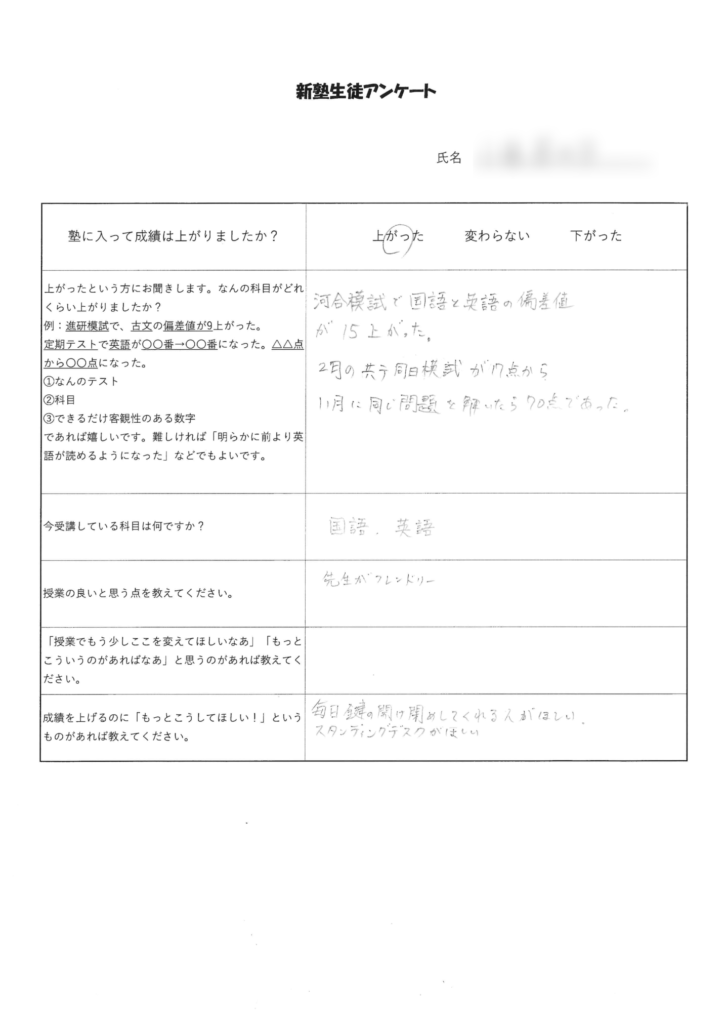 新塾生徒アンケート
氏名
塾に入って成績は上がりましたか？
上がった 変わらない 下がった
上がったという方にお聞きします。なんの科目がどれ
くらい上がりましたか？
例：進研模試で、古文の偏差値が9上がった。
定期テストで英語が〇〇番→〇〇番になった。△△点
から〇〇点になった。
①なんのテスト
②科目
③できるだけ客観性のある数字
であれば嬉しいです。難しければ「明らかに前より英
語が読めるようになった」などでもよいです。
河合模試で国語と英語の偏差値
が15上がった。
2月の共テ同日模試が17点から
11月に同じ問題を解いたら70点であった。
今受講している科目は何ですか？
国語、英語
授業の良いと思う点を教えてください。
先生がフレンドリー
「授業でもう少しここを変えてほしいなあ」「もっと
こういうのがあればなあ」と思うのがあれば教えてく
ださい。
成績を上げるのに「もっとこうしてほしい！」という
ものがあれば教えてください。
毎日鍵の開け閉めしてくれる人がほしい、
スタンディングデスクがほしい